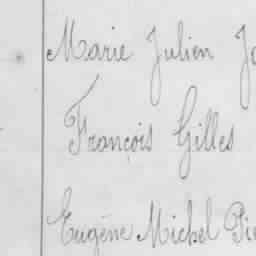 Marie Julien
François Gilles
Eugène Michel